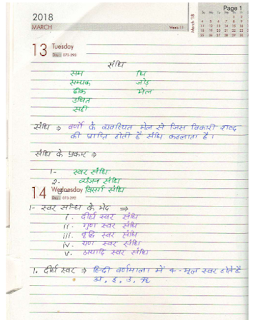 Page 1
2018
MARCH
March '18
13 Tuesday
संधि
सम धि
सम्यक जोड़
ठीक मेल
उचित
सही
संधि ⇒ वर्णों के व्यवस्थित मेल से जिस विकारी शब्द
की प्राप्ति होती है संधि कहलाता है।
संधि के प्रकार ⇒
1- स्वर संधि
2- व्यंजन संधि
14 Wednesday विसर्ग संधि
1- स्वर संधि के भेद ⇒
i. दीर्घ स्वर संधि
ii. गुण स्वर संधि
iii. वृद्धि स्वर संधि
iv. यण स्वर संधि
v. अयादि स्वर संधि
1. दीर्घ स्वर ⇒ हिन्दी वर्णमाला में 4 मूल स्वर होते हैं
अ, इ, उ, ऋ